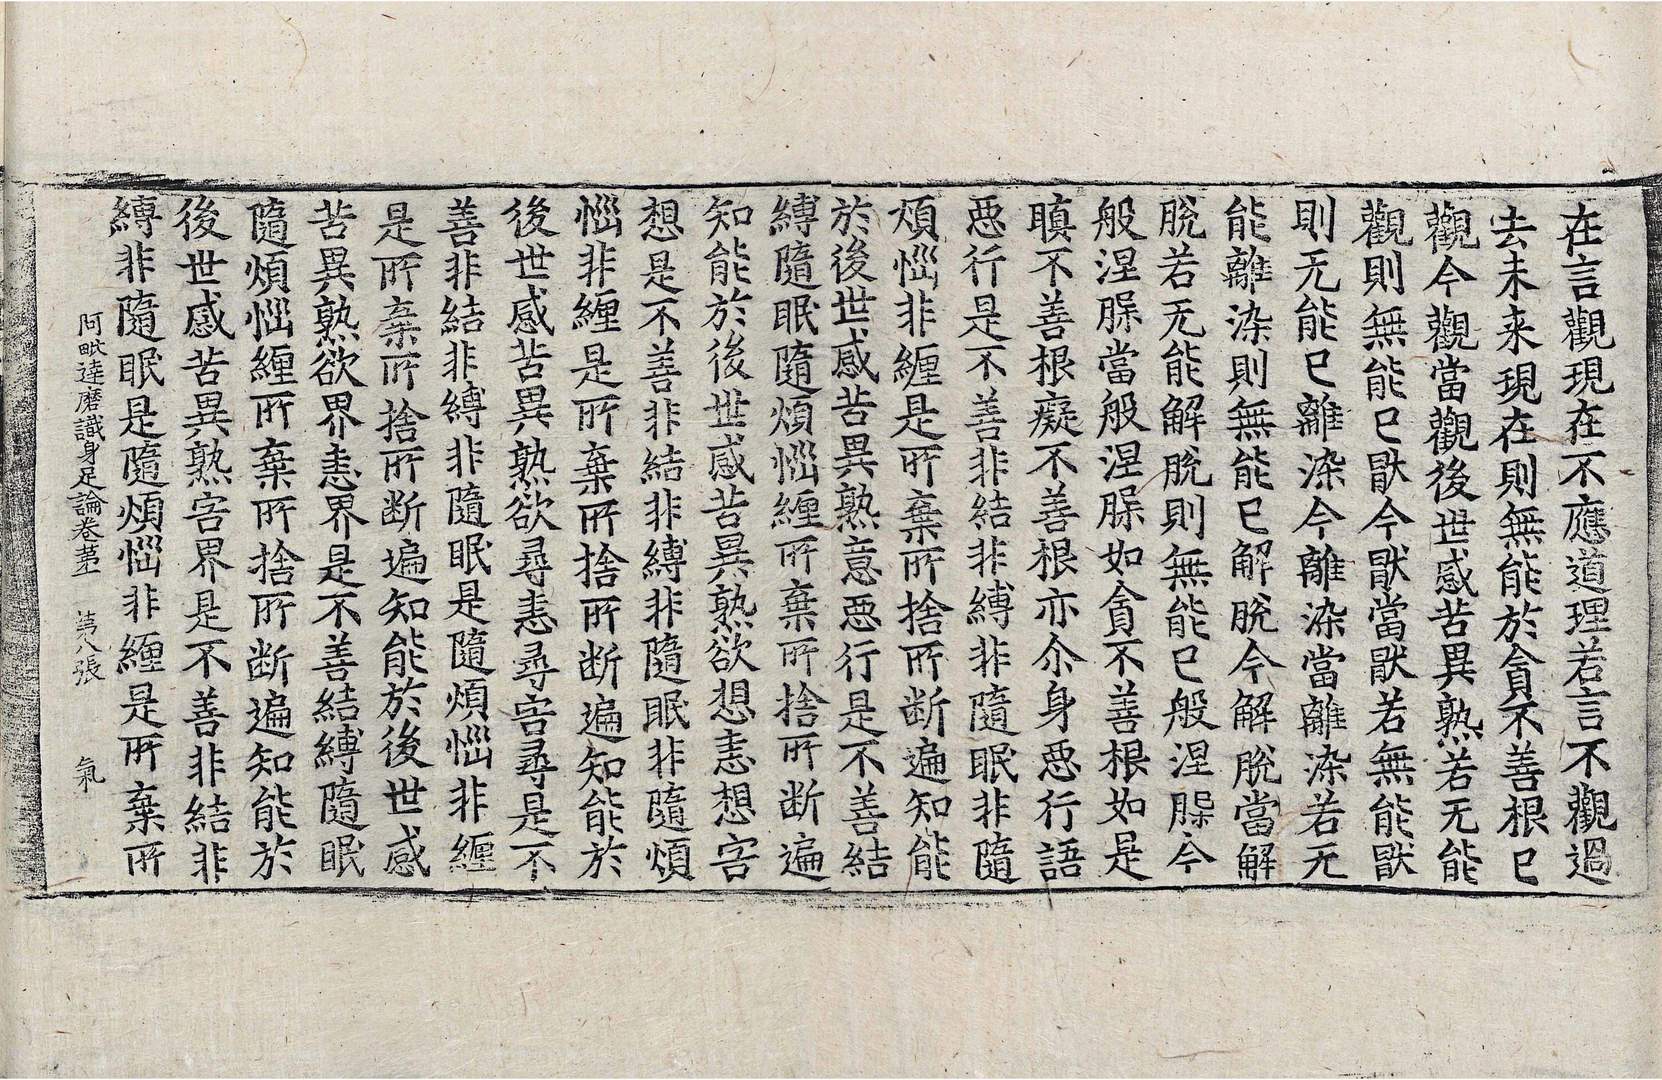 在言觀現在不應道理若言不觀過
去未来現在則無能於貪不善根已
觀今觀當觀後世感苦異熟若无能
觀則無能已猒今猒當猒若無能猒
則无能已離染今離染當離染若无
能離染則無能已解脫今解脫當解
脫若无能解脫則無能已般涅槃今
般涅槃當般涅槃如貪不善根如是
瞋不善根癡不善根亦尒身惡行語
惡行是不善非結非縛非隨眠非隨
煩惱非纏是所棄所捨所断遍知能
於後世感苦異熟意惡行是不善結
縛隨眠隨煩惱纏所棄所捨所断遍
知能於後世感苦異熟欲想恚想害
想是不善非結非縛非隨眠非隨煩
惱非纏是所棄所捨所断遍知能於
後世感苦異熟欲尋恚尋害尋是不
善非結非縛非隨眠是隨煩惱非纏
是所棄所捨所断遍知能於後世感
苦異熟欲界恚界是不善結縛隨眠
隨煩惱纏所棄所捨所断遍知能於
後世感苦異熟害界是不善非結非
縛非隨眠是隨煩惱非纏是所棄所
阿毗達磨識身足論卷苐一 第八張 氣